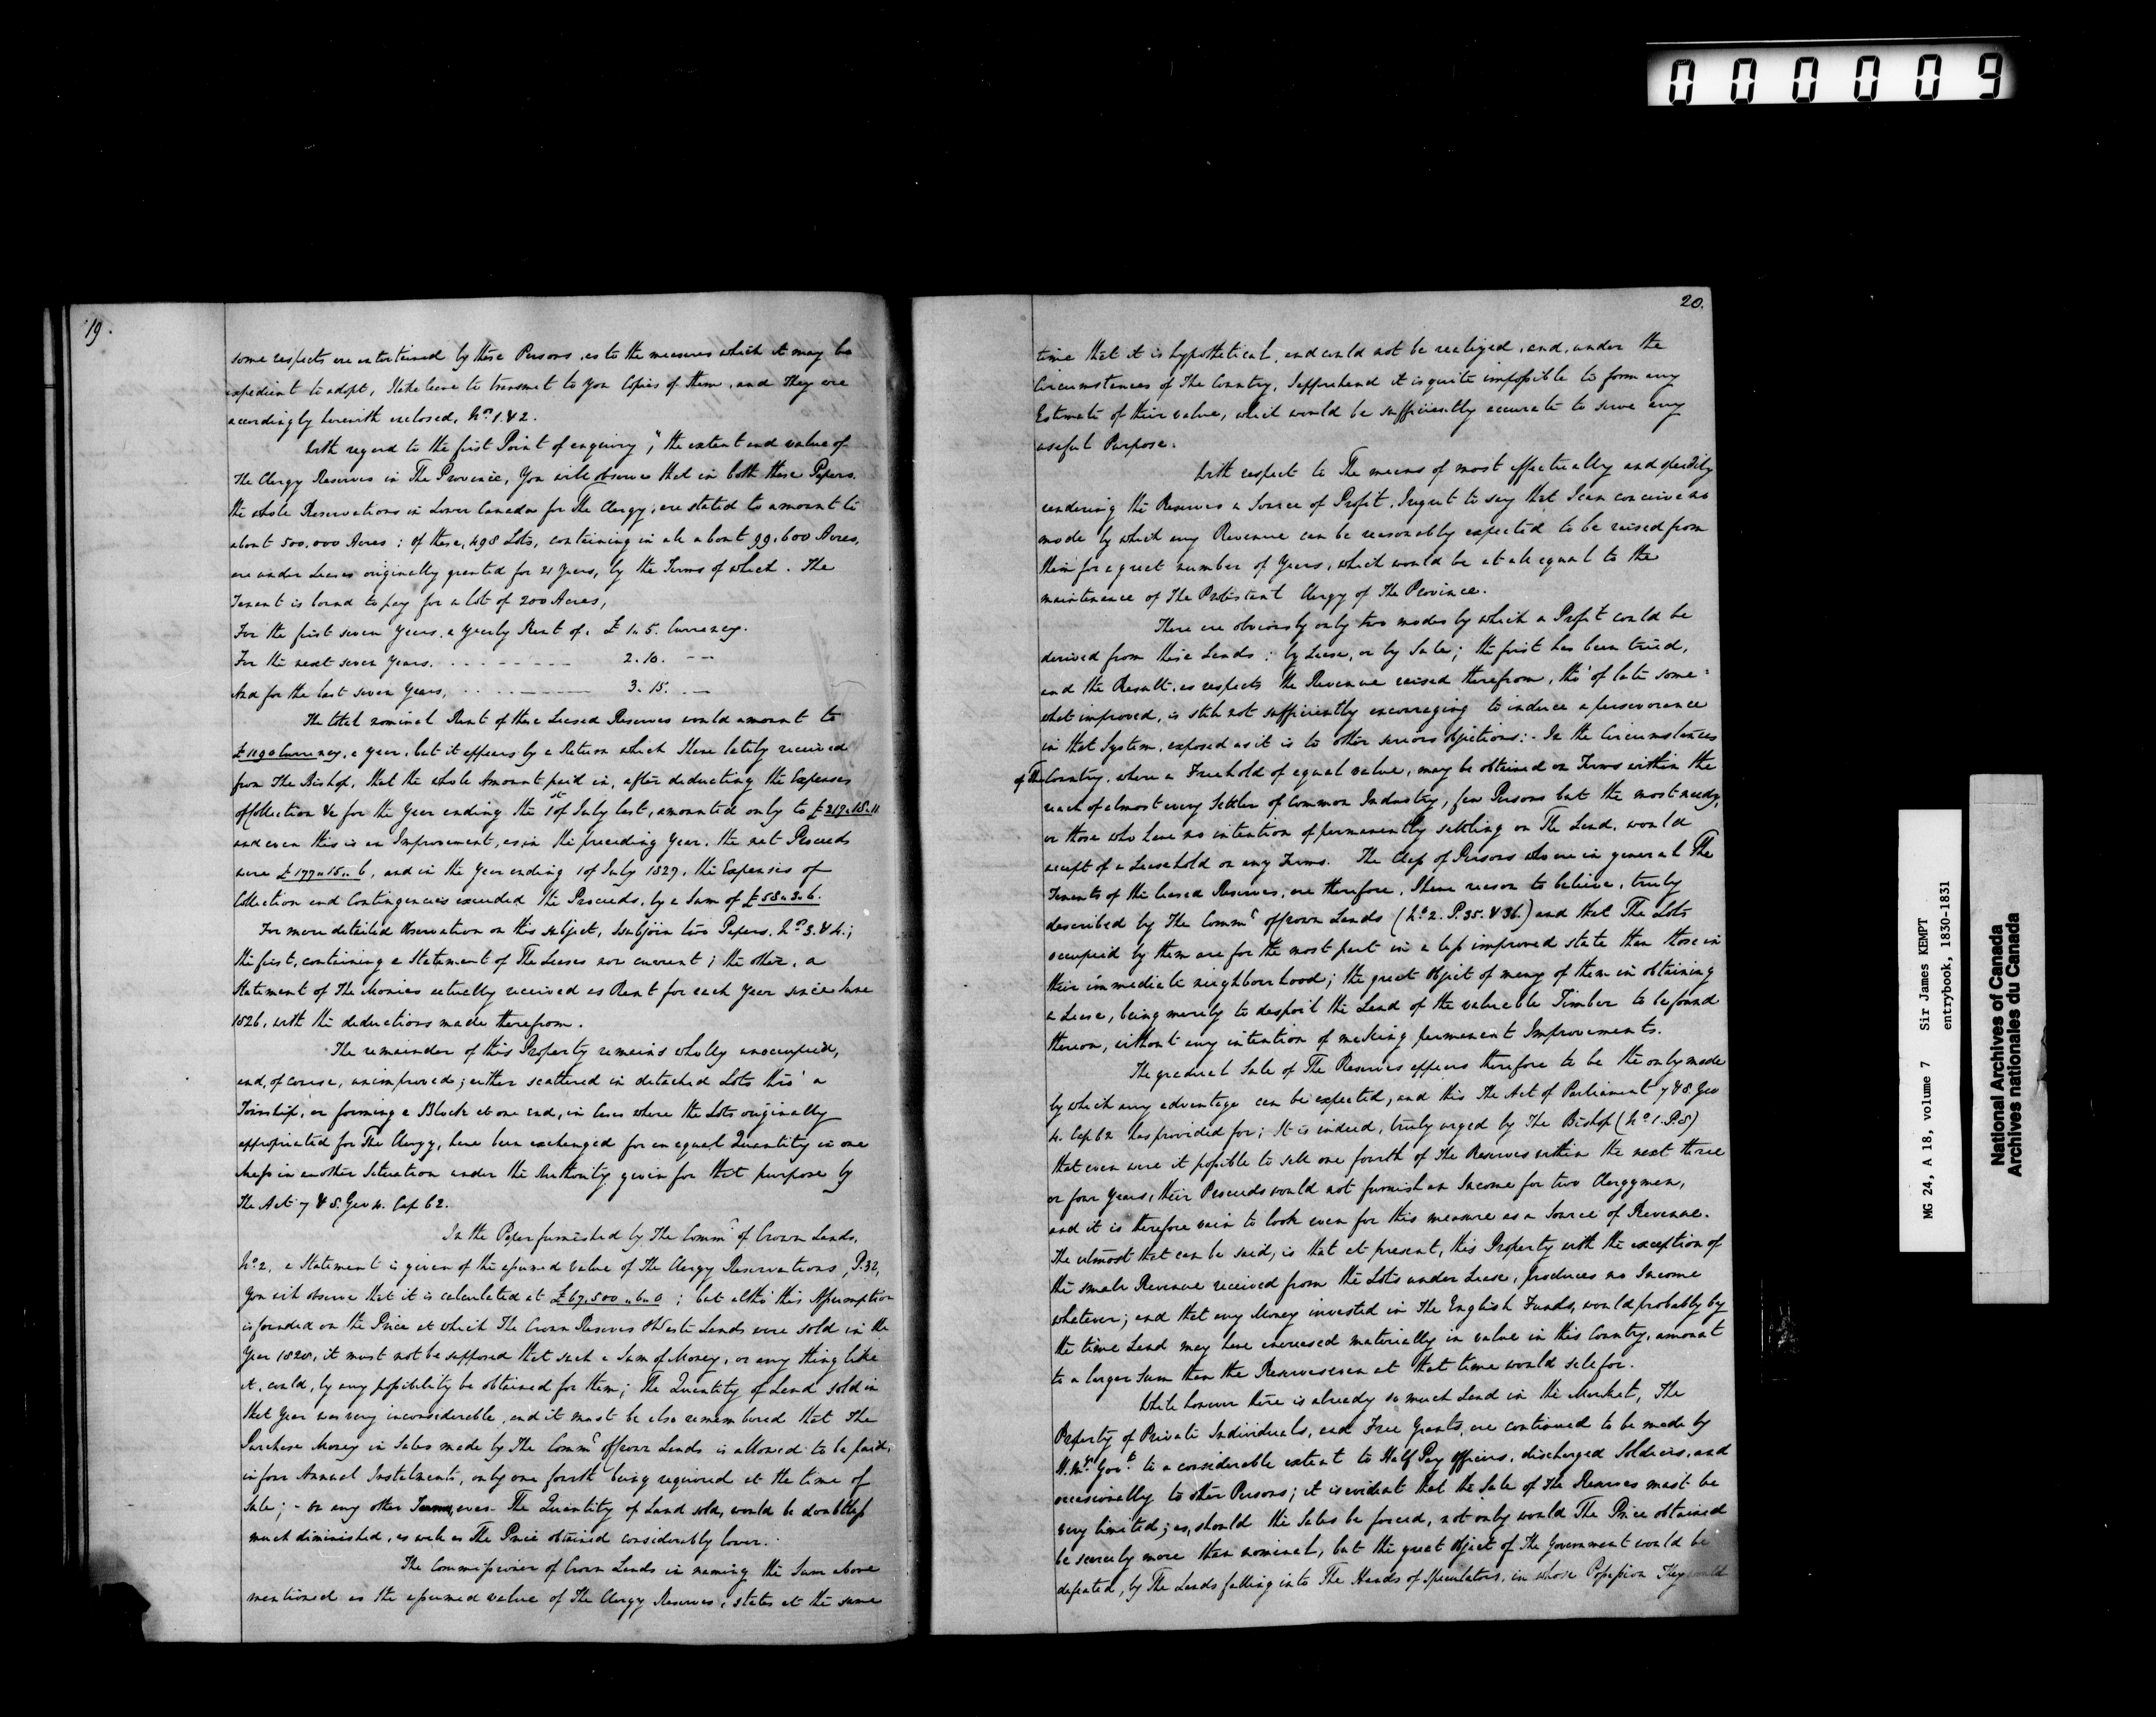 000009
19.
some respects are entertained by these Persons, as to the measures which it may be
expedient to adopt, I take leave to transmit to you Copies of them, and They are
accordingly herewith enclosed, Nos. 1. & 2.
With regard to the first Point of enquiry, "the extent and value of
The Clergy Reserves in The Province, You will observe that in both these Papers.
the whole Reservations in Lower Canada for The Clergy, are stated to amount to
about 500,000 Acres: of these, 498 Lots, containing in all about 99,600 Acres,
are under Leases originally granted for 21 Years, by the Terms of which. The
Tenant is bound to pay for a lot of 200 Acres,
For the first seven Years, a Yearly Rent of. £ 1. 5. Currency.
For the next seven Years. . . . - - - - - 2. 10. - -
And for the last seven Years, . . . - - - - 3. 15. - -
The total nominal Rent of these Leased Reserves would amount to
£1190 Currency, a year, but it appears by a Return which I have lately received
from The Bishop, that the whole Amount paid in, after deducting the Expenses
of Collection &c for the Year ending the 1st of July last, amounted only to £217.18.11
and even this is an Improvement, as, in the preceding Year, the net Proceeds
were £177.15..6, and in the Year ending 1 of July 1827, the Expenses of
Collection and Contingencies exceeded the Proceeds, by a Sum of £58.3.6.
For more detailed Observation on this subject, I subjoin two Papers. Nos. 3. & 4.;
the first, containing a Statement of The Leases now current; the other, a
Statement of The Monies actually received as Rent for each Year since June
1826, with the deductions made therefrom.
The remainder of this Property remains wholly unoccupied,
and, of course, unimproved; either scattered in detached Lots thro' a
Township, or forming a Block at one end, in Cases where the Lots originally
appropriated for The Clergy, have been exchanged for an equal Quantity in one
Mass in another Situation under the Authority given for that purpose by
The Act 7 & 8. Geo 4. Cap 62.
In the Paper furnished by The Commr of Crown Lands,
No 2, a Statement is given of the assumed value of The Clergy Reservations, P.32,
You will observe that it is calculated at £67,500..0..0; but altho' this Assumption
is founded on the Price at which The Crown Reserves & Waste Lands were sold in the
Year 1828, it must not be supposed that such a Sum of Money, or any thing like
it, could, by any possibility be obtained for them; The Quantity of Land sold in
that Year was very inconsiderable, and it must be also remembered that The
Purchase Money in Sales made by The Commr of Crown Lands is allowed to be paid,
in four Annual Instalments, only one fourth being required at the time of
Sale; - On any other Terms, even The Quantity of Land sold, would be doubtless
much diminished, as well as The Price obtained considerably lower.
The Commissioner of Crown Lands in naming the Sum above
mentioned as the assumed value of The Clergy Reserves, states at the same
20.
time that it is hypothetical, and could not be realized, and, under the
Circumstances of The Country, I apprehend it is quite impossible to form any
Estimate of their value, which would be sufficiently accurate to serve any
useful Purpose.
With respect to The means of most effectually and speedily
rendering the Reserves a Source of Profit, I regret to say that I can conceive no
mode by which any Revenue can be reasonably expected to be raised from
them for a great number of Years, which would be at all equal to the
maintenance of The Protestant Clergy of The Province.
There are obviously only two modes by which a Profit could be
derived from these Lands: by Lease, or by Sale; the first has been tried,
and the Result, as respects the Revenue raised therefrom, tho' of late some=
what improved, is still not sufficiently encouraging to induce a perseverance
in that System, exposed as it is to other serious objections: - In the Circumstances
of The Country, where a Freehold of equal value, may be obtained on Terms within the
reach of almost every Settler of Common Industry, few Persons but the most needy,
or those who have no intention of permanently settling on The Land, would
accept of a Leasehold on any Terms. The Class of Persons who are in general The
Tenants of the leased Reserves, are therefore, I have reason to believe, truly
described by The Commr of Crown Lands (No 2. P. 35. & 36.) and that The Lots
occupied by them are for the most part in a less improved state than those in
their immediate neighbourhood; the great object of many of them in obtaining
a Lease, being merely to despoil the Land of the valuable Timber to be found
thereon, without any intention of making permanent Improvements.
The gradual Sale of The Reserves appears therefore to be the only mode
by which any advantage can be expected, and this The Act of Parliament 7 & 8. Geo
4. Cap 62 has provided for; It is indeed, truly urged by The Bishop (No 1. P.8)
that even were it possible to sell one fourth of The Reserves within the next three
or four Years, their Proceeds would not furnish an Income for two Clergymen,
and it is therefore vain to look even for this measure as a Source of Revenue.
The utmost that can be said, is that at present, this Property with the exception of
the small Revenue received from the Lots under Lease, produces no Income
whatever; and that any Money invested in The English Funds, would probably by
the time Land may have increased materially in value in this Country, amount
to a larger Sum than the Reserves even at that time would sell for.
While however there is already so much Land in the Market, The
Property of Private Individuals, and Free Grants, are continued to be made by
H. M's Govt to a considerable extent to Half Pay Officers, discharged Soldiers, and
occasionally to other Persons; it is evident that the Sale of The Reserves must be
very limited; as, should the Sales be forced, not only would The Price obtained
be scarcely more than nominal, but the great object of The Government would be
defeated, by The Lands falling into The Hands of Speculators, in whose Possession They would
MG 24, A 18, volume 7 Sir James KEMPT
entrybook, 1830-1831
National Archives of Canada
Archives nationales du Canada